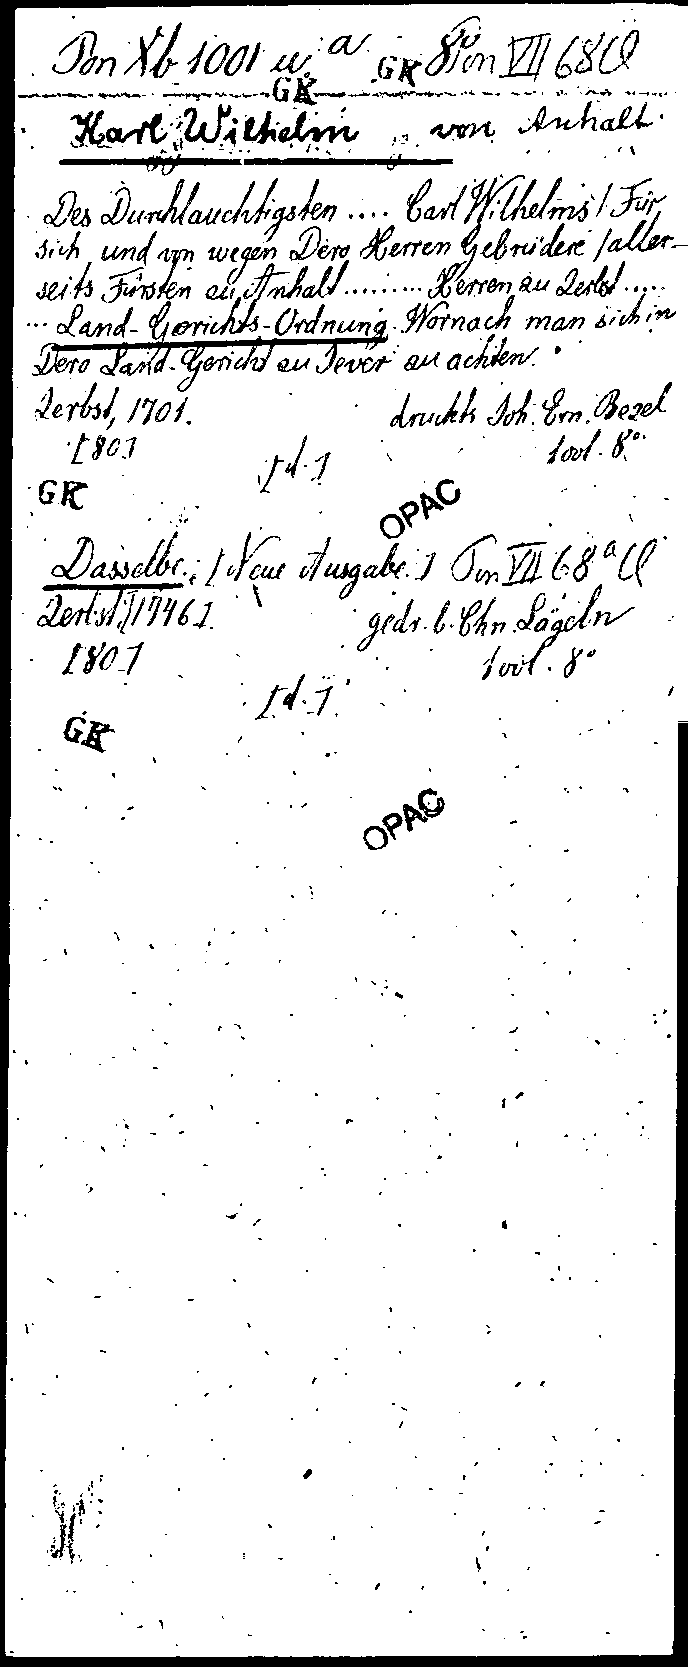 Pon Xb 1001 u. a GK Pon VII 68 Q
GK
Karl Wilhelm, von Anhalt.
Des Durchlauchtigsten .... Carl Wilhelms / Für
sich und von wegen Dero Herren Gebrüdere / aller-
seits Fürsten zu Anhalt ......... Herren zu Zerbst .....
... Land-Gerichts-Ordnung. Wornach man sich in
Dero Land-Gericht zu Jever zu achten.
Zerbst, 1701. druckts Joh. Ern. Bezel
[80] 1 vol. 8°.
[d.]
GK OPAC
Dasselbe. [Neue Ausgabe.] Pon VII 68 a Q
Zerbst, [1746]. gedr. b. Chn. Lägeln
[80] 1 vol. 8°
[d.]
GK
OPAC